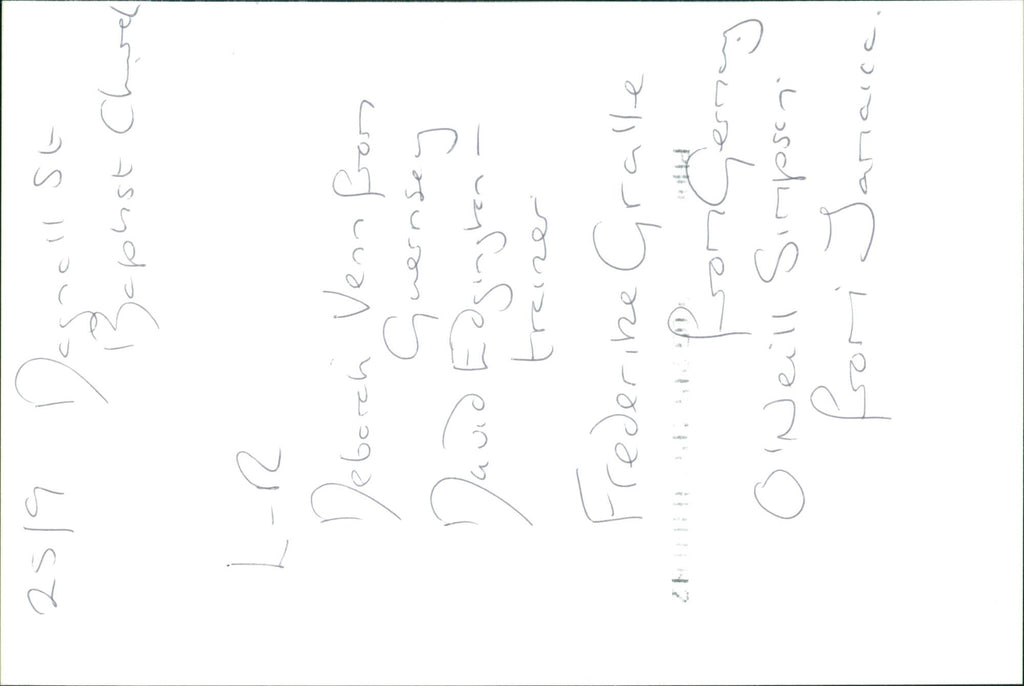 25/9 Dagnall St
Baptist Church
L-R
Deborah Venn from
Guernsey
David Edgington -
trainer
Frederike Gralle
from Germany
O'Neill Simpson
from Jamaica.